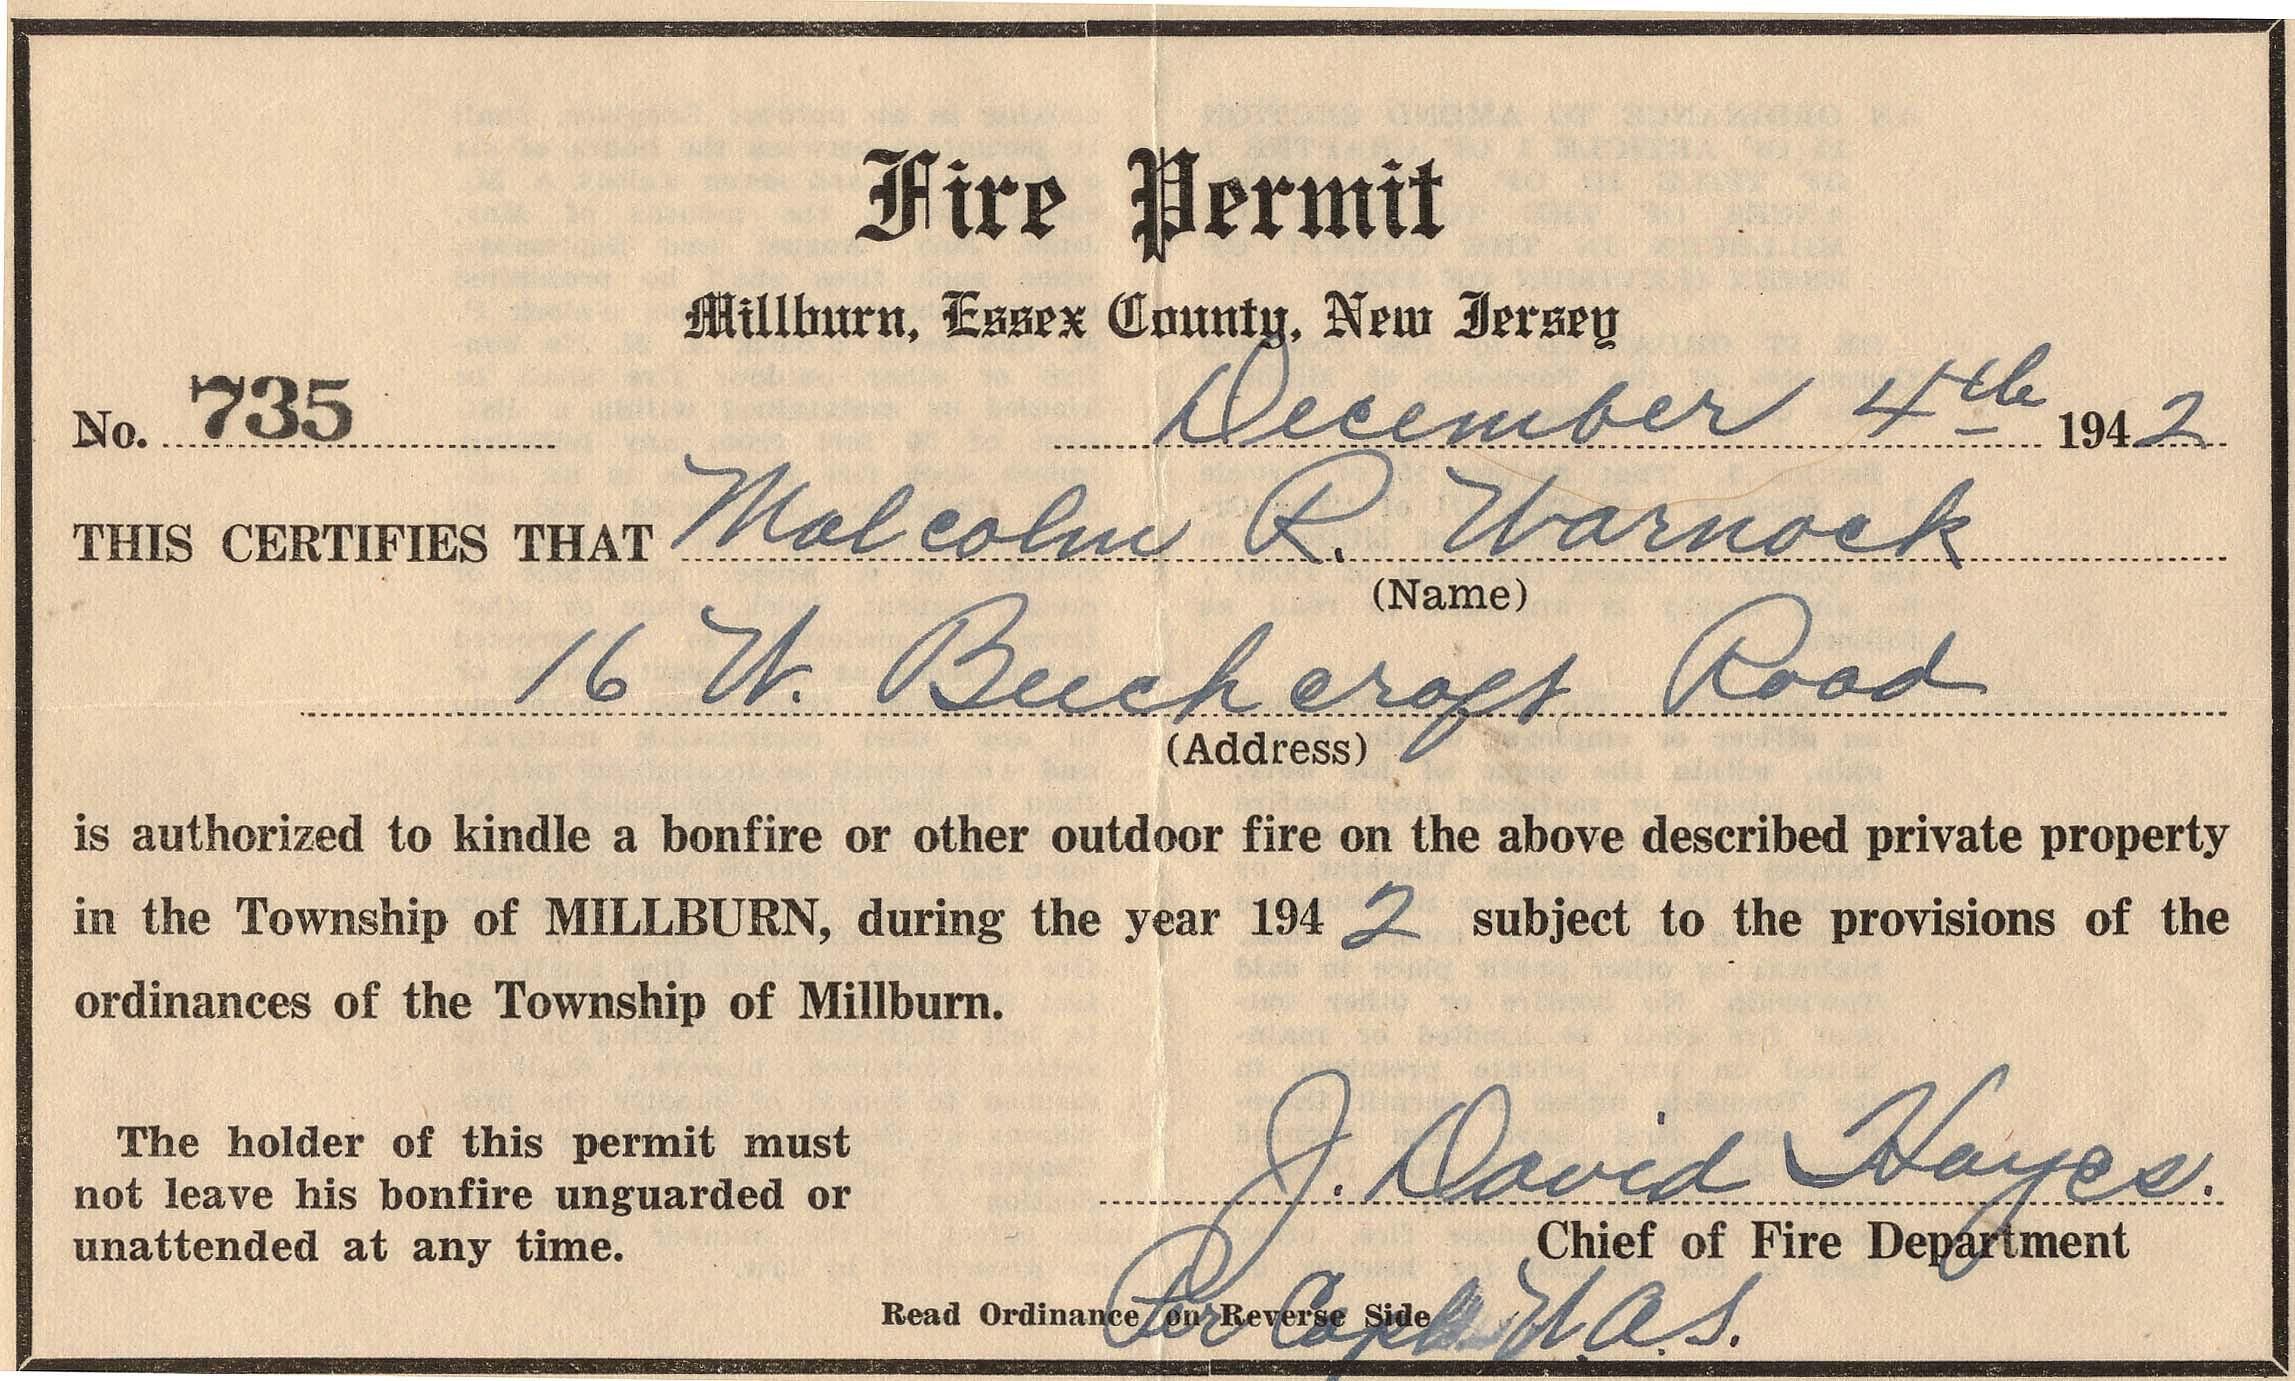 Fire Permit
Millburn, Essex County, New Jersey
No. 735 December 4th 1942
THIS CERTIFIES THAT Malcolm R. Warnock
(Name)
16 W. Beechcroft Road
(Address)
is authorized to kindle a bonfire or other outdoor fire on the above described private property
in the Township of MILLBURN, during the year 1942 subject to the provisions of the
ordinances of the Township of Millburn.
The holder of this permit must
not leave his bonfire unguarded or
unattended at any time.
J. David Hayes.
Chief of Fire Department
Per Capt. W.A.S.
Read Ordinance on Reverse Side